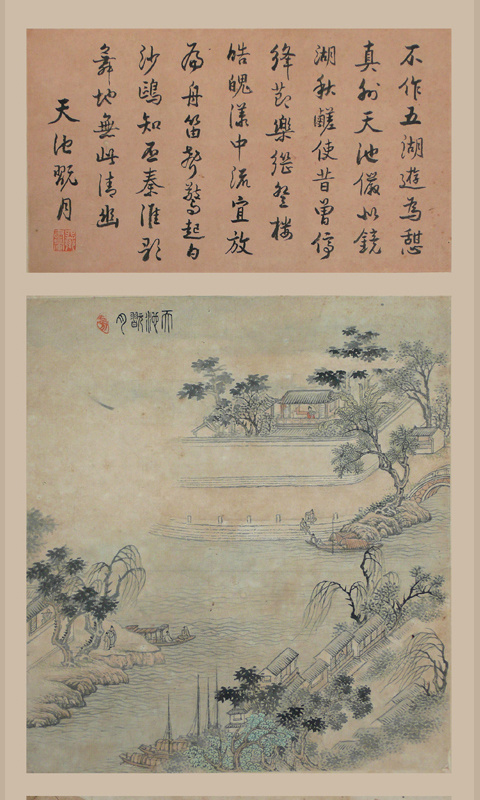 不作五湖遊為憩
真州天池儼似鏡
湖秋鹺使昔曾停
絳節樂登樓
皓魄漾中流宜放
扁舟笛聲驚起白
沙鷗知否秦淮歌
舞地無此清幽
天池翫月
天池翫月